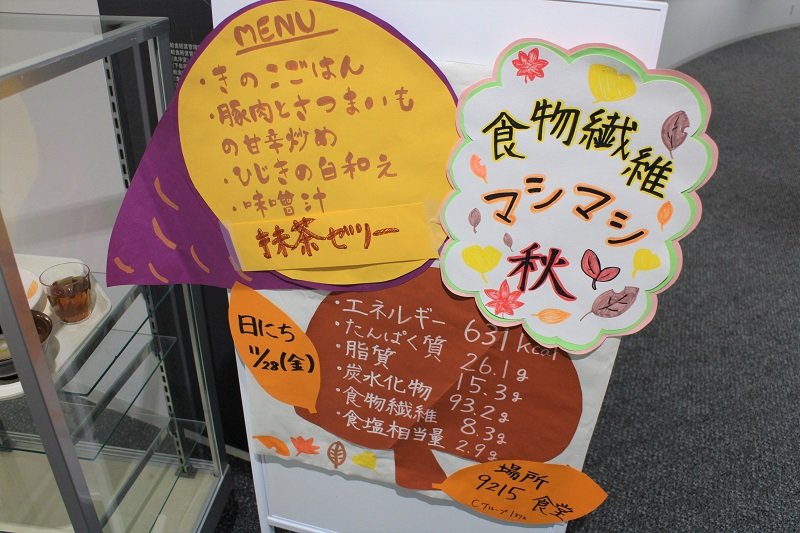 MENU
・きのこごはん
・豚肉とさつまいも
の甘辛炒め
・ひじきの白和え
・味噌汁
抹茶ゼリー
食物繊維
マシマシ
秋
日にち
11/28(金)
・エネルギー 631kcal
・たんぱく質 26.1g
・脂質 15.3g
・炭水化物 93.2g
・食物繊維 8.3g
・食塩相当量 2.9g
場所
9215 食堂